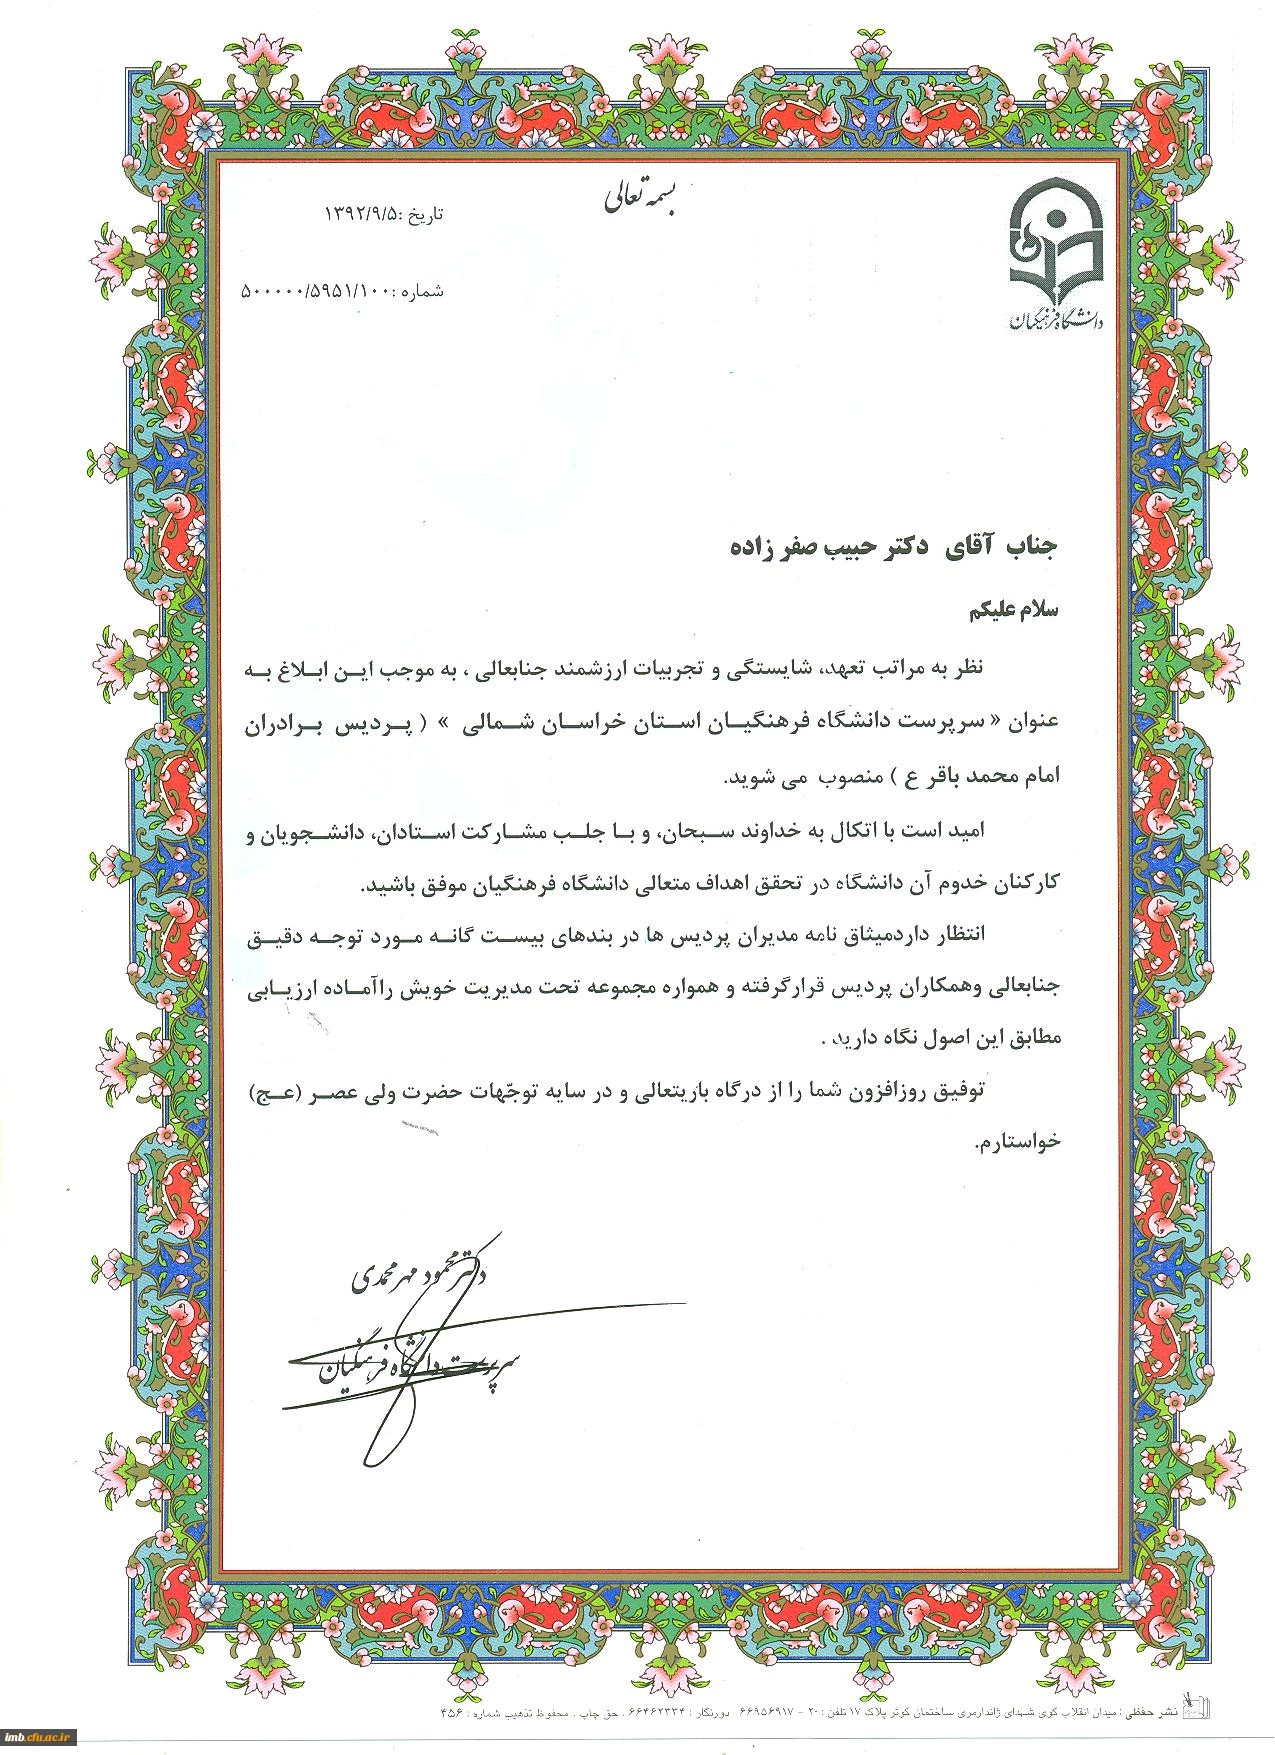 بسمه تعالی
تاریخ :۱۳۹۲/۹/۵
شماره :۵۰۰۰۰۰/۵۹۵۱/۱۰۰
دانشگاه فرهنگیان
جناب آقای دکتر حبیب صفر زاده
سلام علیکم
نظر به مراتب تعهد، شایستگی و تجربیات ارزشمند جنابعالی ، به موجب این ابلاغ به
عنوان « سرپرست دانشگاه فرهنگیان استان خراسان شمالی » ( پردیس برادران
امام محمد باقر ع ) منصوب می شوید.
امید است با اتکال به خداوند سبحان، و با جلب مشارکت استادان، دانشجویان و
کارکنان خدوم آن دانشگاه در تحقق اهداف متعالی دانشگاه فرهنگیان موفق باشید.
انتظار داردمیثاق نامه مدیران پردیس ها در بندهای بیست گانه مورد توجه دقیق
جنابعالی وهمکاران پردیس قرارگرفته و همواره مجموعه تحت مدیریت خویش راآماده ارزیابی
مطابق این اصول نگاه دارید .
توفیق روزافزون شما را از درگاه باریتعالی و در سایه توجّهات حضرت ولی عصر (عج)
خواستارم.
دکتر محمود مهرمحمدی
سرپرست دانشگاه فرهنگیان
نشر حفظی : میدان انقلاب کوی شهدای ژاندارمری ساختمان کوثر پلاک ۱۷ تلفن : ۲۰ - ۶۶۹۵۶۹۱۷ دورنگار : ۶۶۴۶۲۳۳۴ . حق چاپ . محفوظ تذهیب شماره : ۴۵۶
imb.cfu.ac.ir